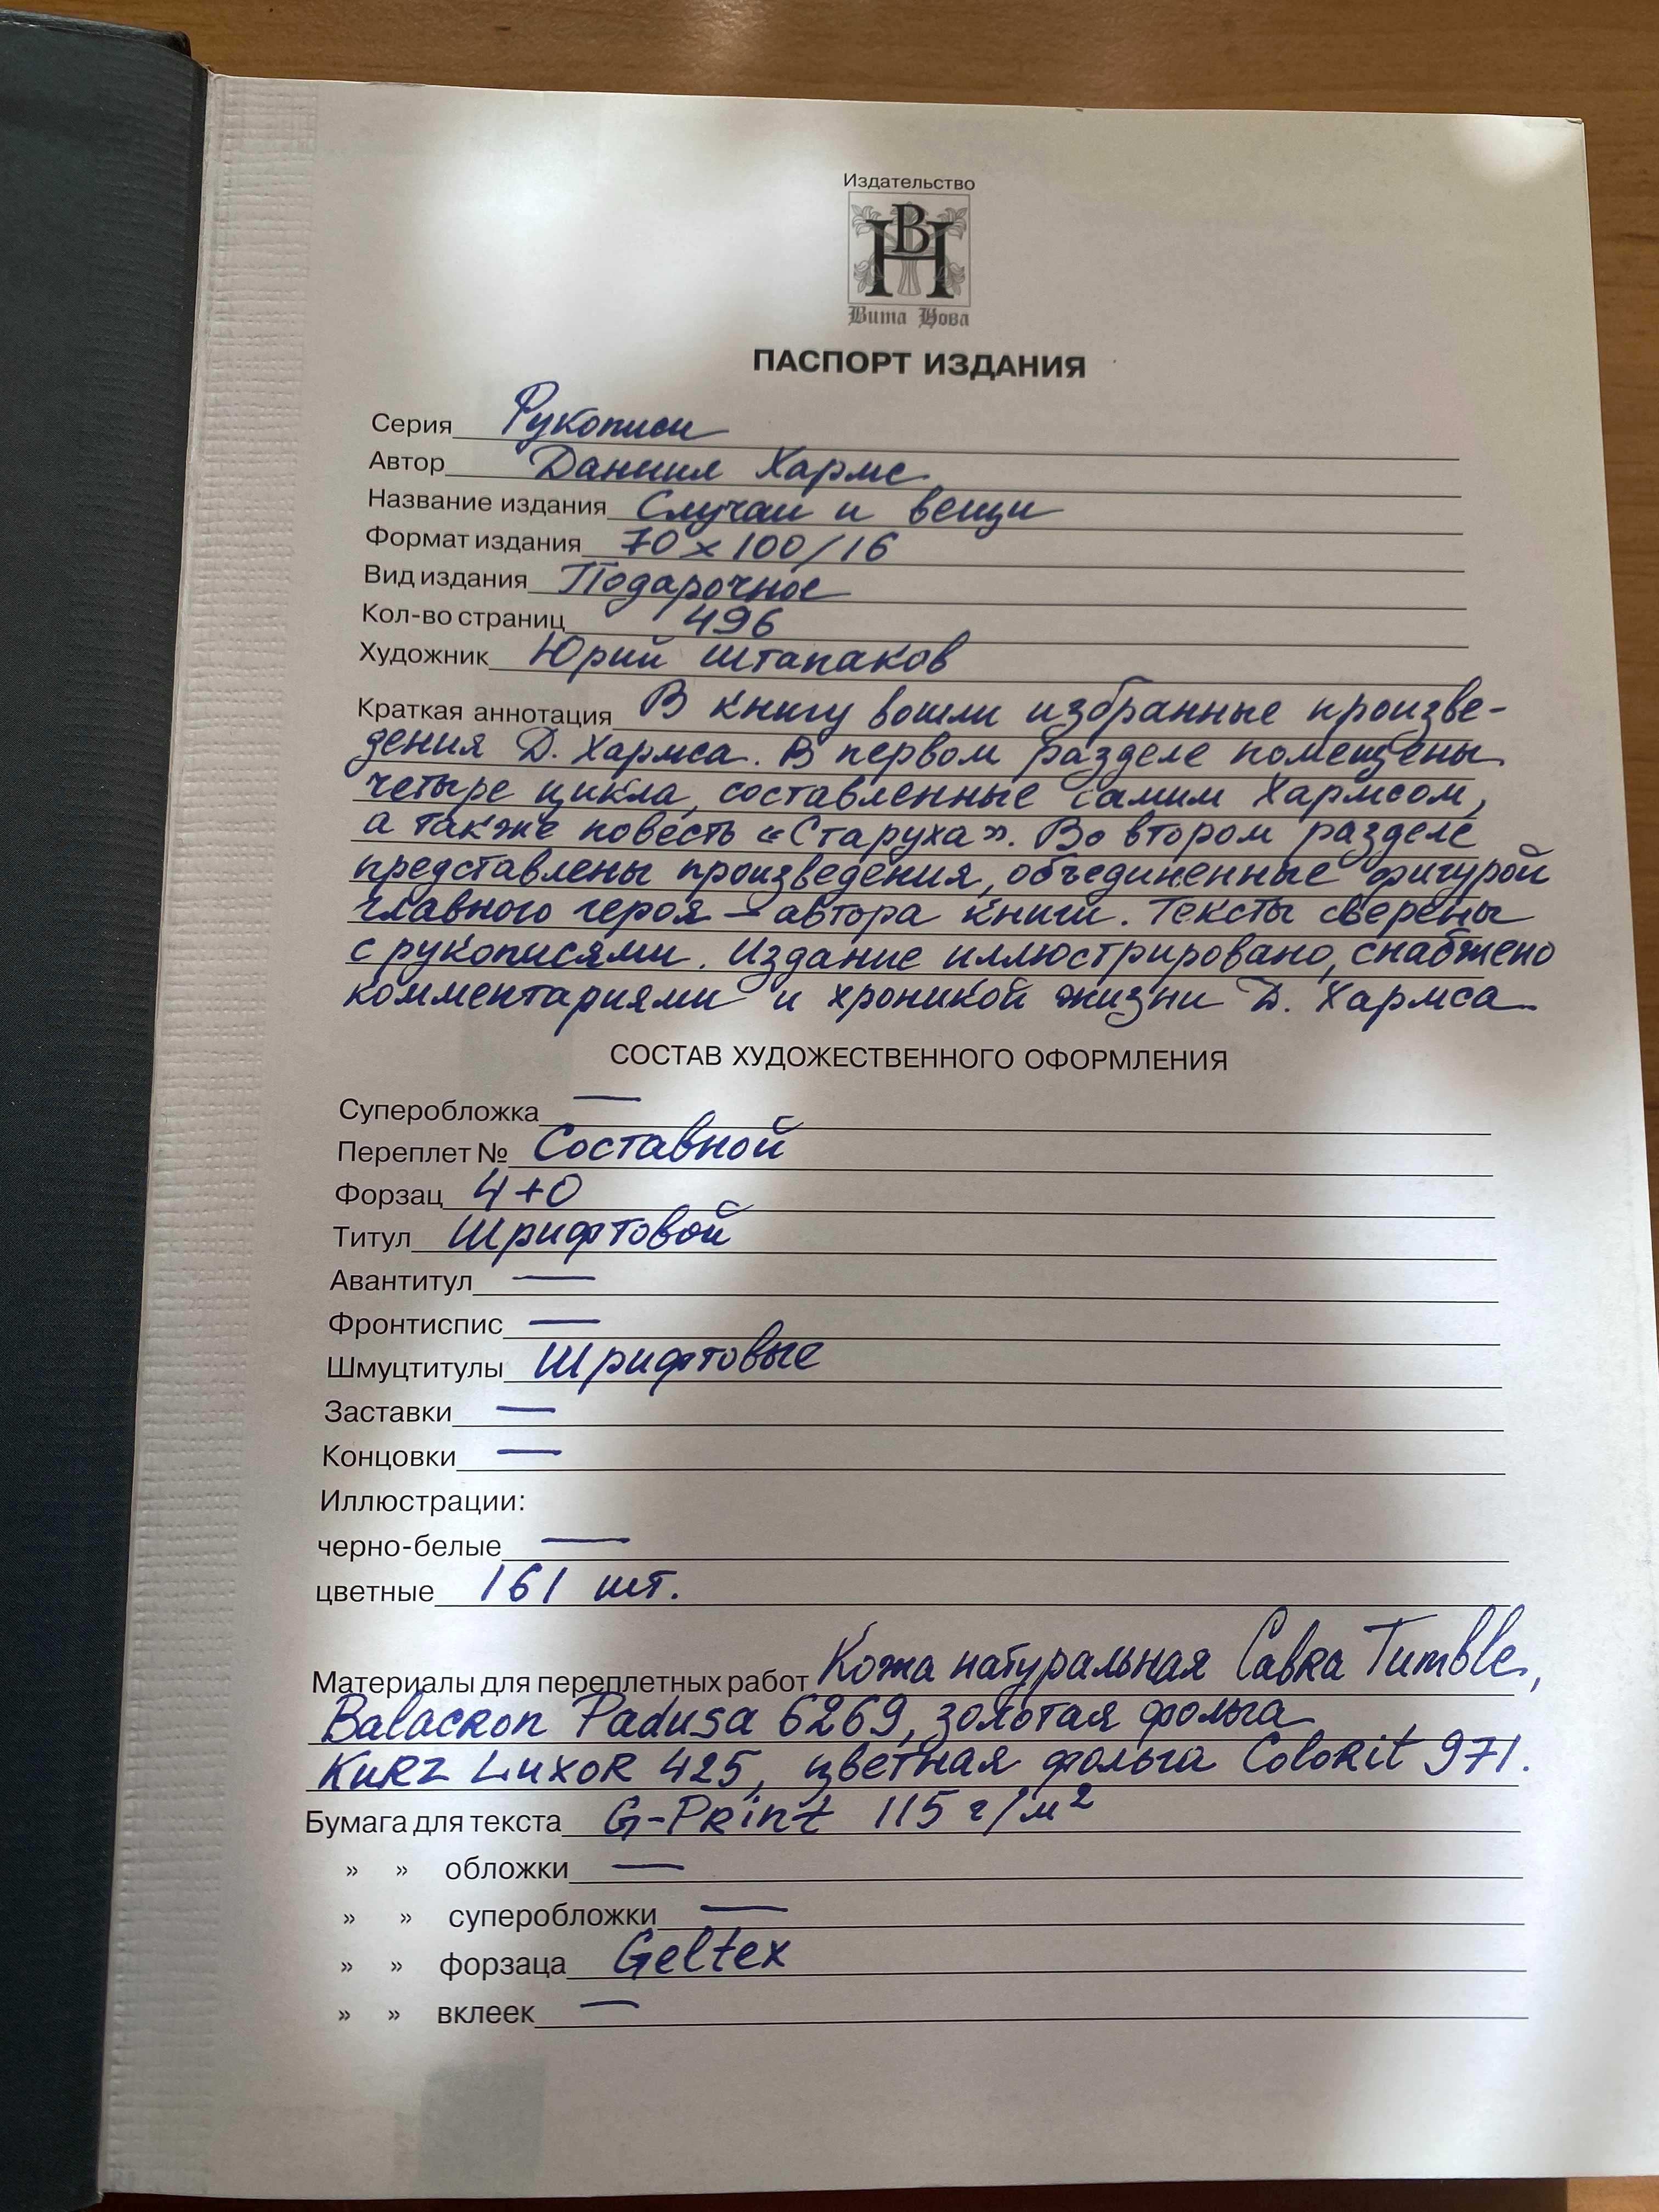 Издательство
ВН
Вита Нова
ПАСПОРТ ИЗДАНИЯ
Серия Рукописи
Автор Даниил Хармс
Название издания Случаи и вещи
Формат издания 70 x 100/16
Вид издания Подарочное
Кол-во страниц 496
Художник Юрий Штапаков
Краткая аннотация В книгу вошли избранные произве-
дения Д. Хармса. В первом разделе помещены
четыре цикла, составленные самим Хармсом,
а также повесть «Старуха». Во втором разделе
представлены произведения, объединенные фигурой
главного героя – автора книги. Тексты сверены
с рукописями. Издание иллюстрировано, снабжено
комментариями и хроникой жизни Д. Хармса
СОСТАВ ХУДОЖЕСТВЕННОГО ОФОРМЛЕНИЯ
Суперобложка —
Переплет № Составной
Форзац 4+0
Титул Шрифтовой
Авантитул —
Фронтиспис —
Шмуцтитулы Шрифтовые
Заставки —
Концовки —
Иллюстрации:
черно-белые —
цветные 161 шт.
Материалы для переплетных работ Кожа натуральная Cabra Tumble,
Balacron Padusa 6269, золотая фольга
KURZ LUXOR 425, цветная фольга Colorit 971.
Бумага для текста G-Print 115 г/м²
» » обложки —
» » суперобложки —
» » форзаца Geltex
» » вклеек —